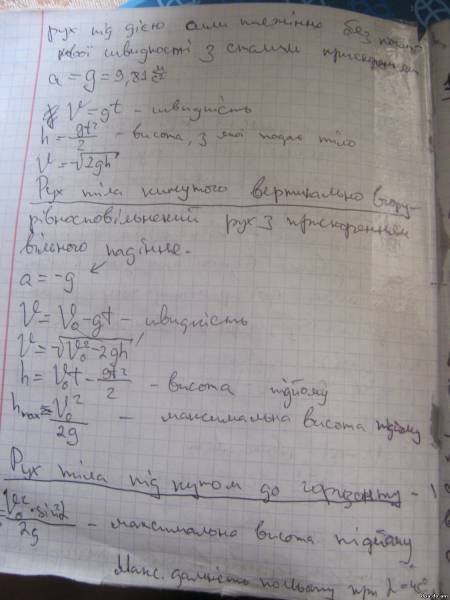 рух під дією сили тяжіння без почат-
кової швидкості з сталим прискоренням
a = g = 9,81 м/с²
V = gt - швидкість
h = gt²/2 - висота, з якої падає тіло
V = √2gh
Рух тіла кинутого вертикально вгору -
рівносповільнений рух з прискоренням
вільного падіння.
a = -g
V = V₀ - gt - швидкість
V = √V₀² - 2gh
h = V₀t - gt²/2 - висота підйому
hmax = V₀²/2g - максимальна висота підйому
Рух тіла під кутом до горизонту -
= V₀² · sin²α/2g - максимальна висота підйому
Макс. дальність польоту при α = 45°